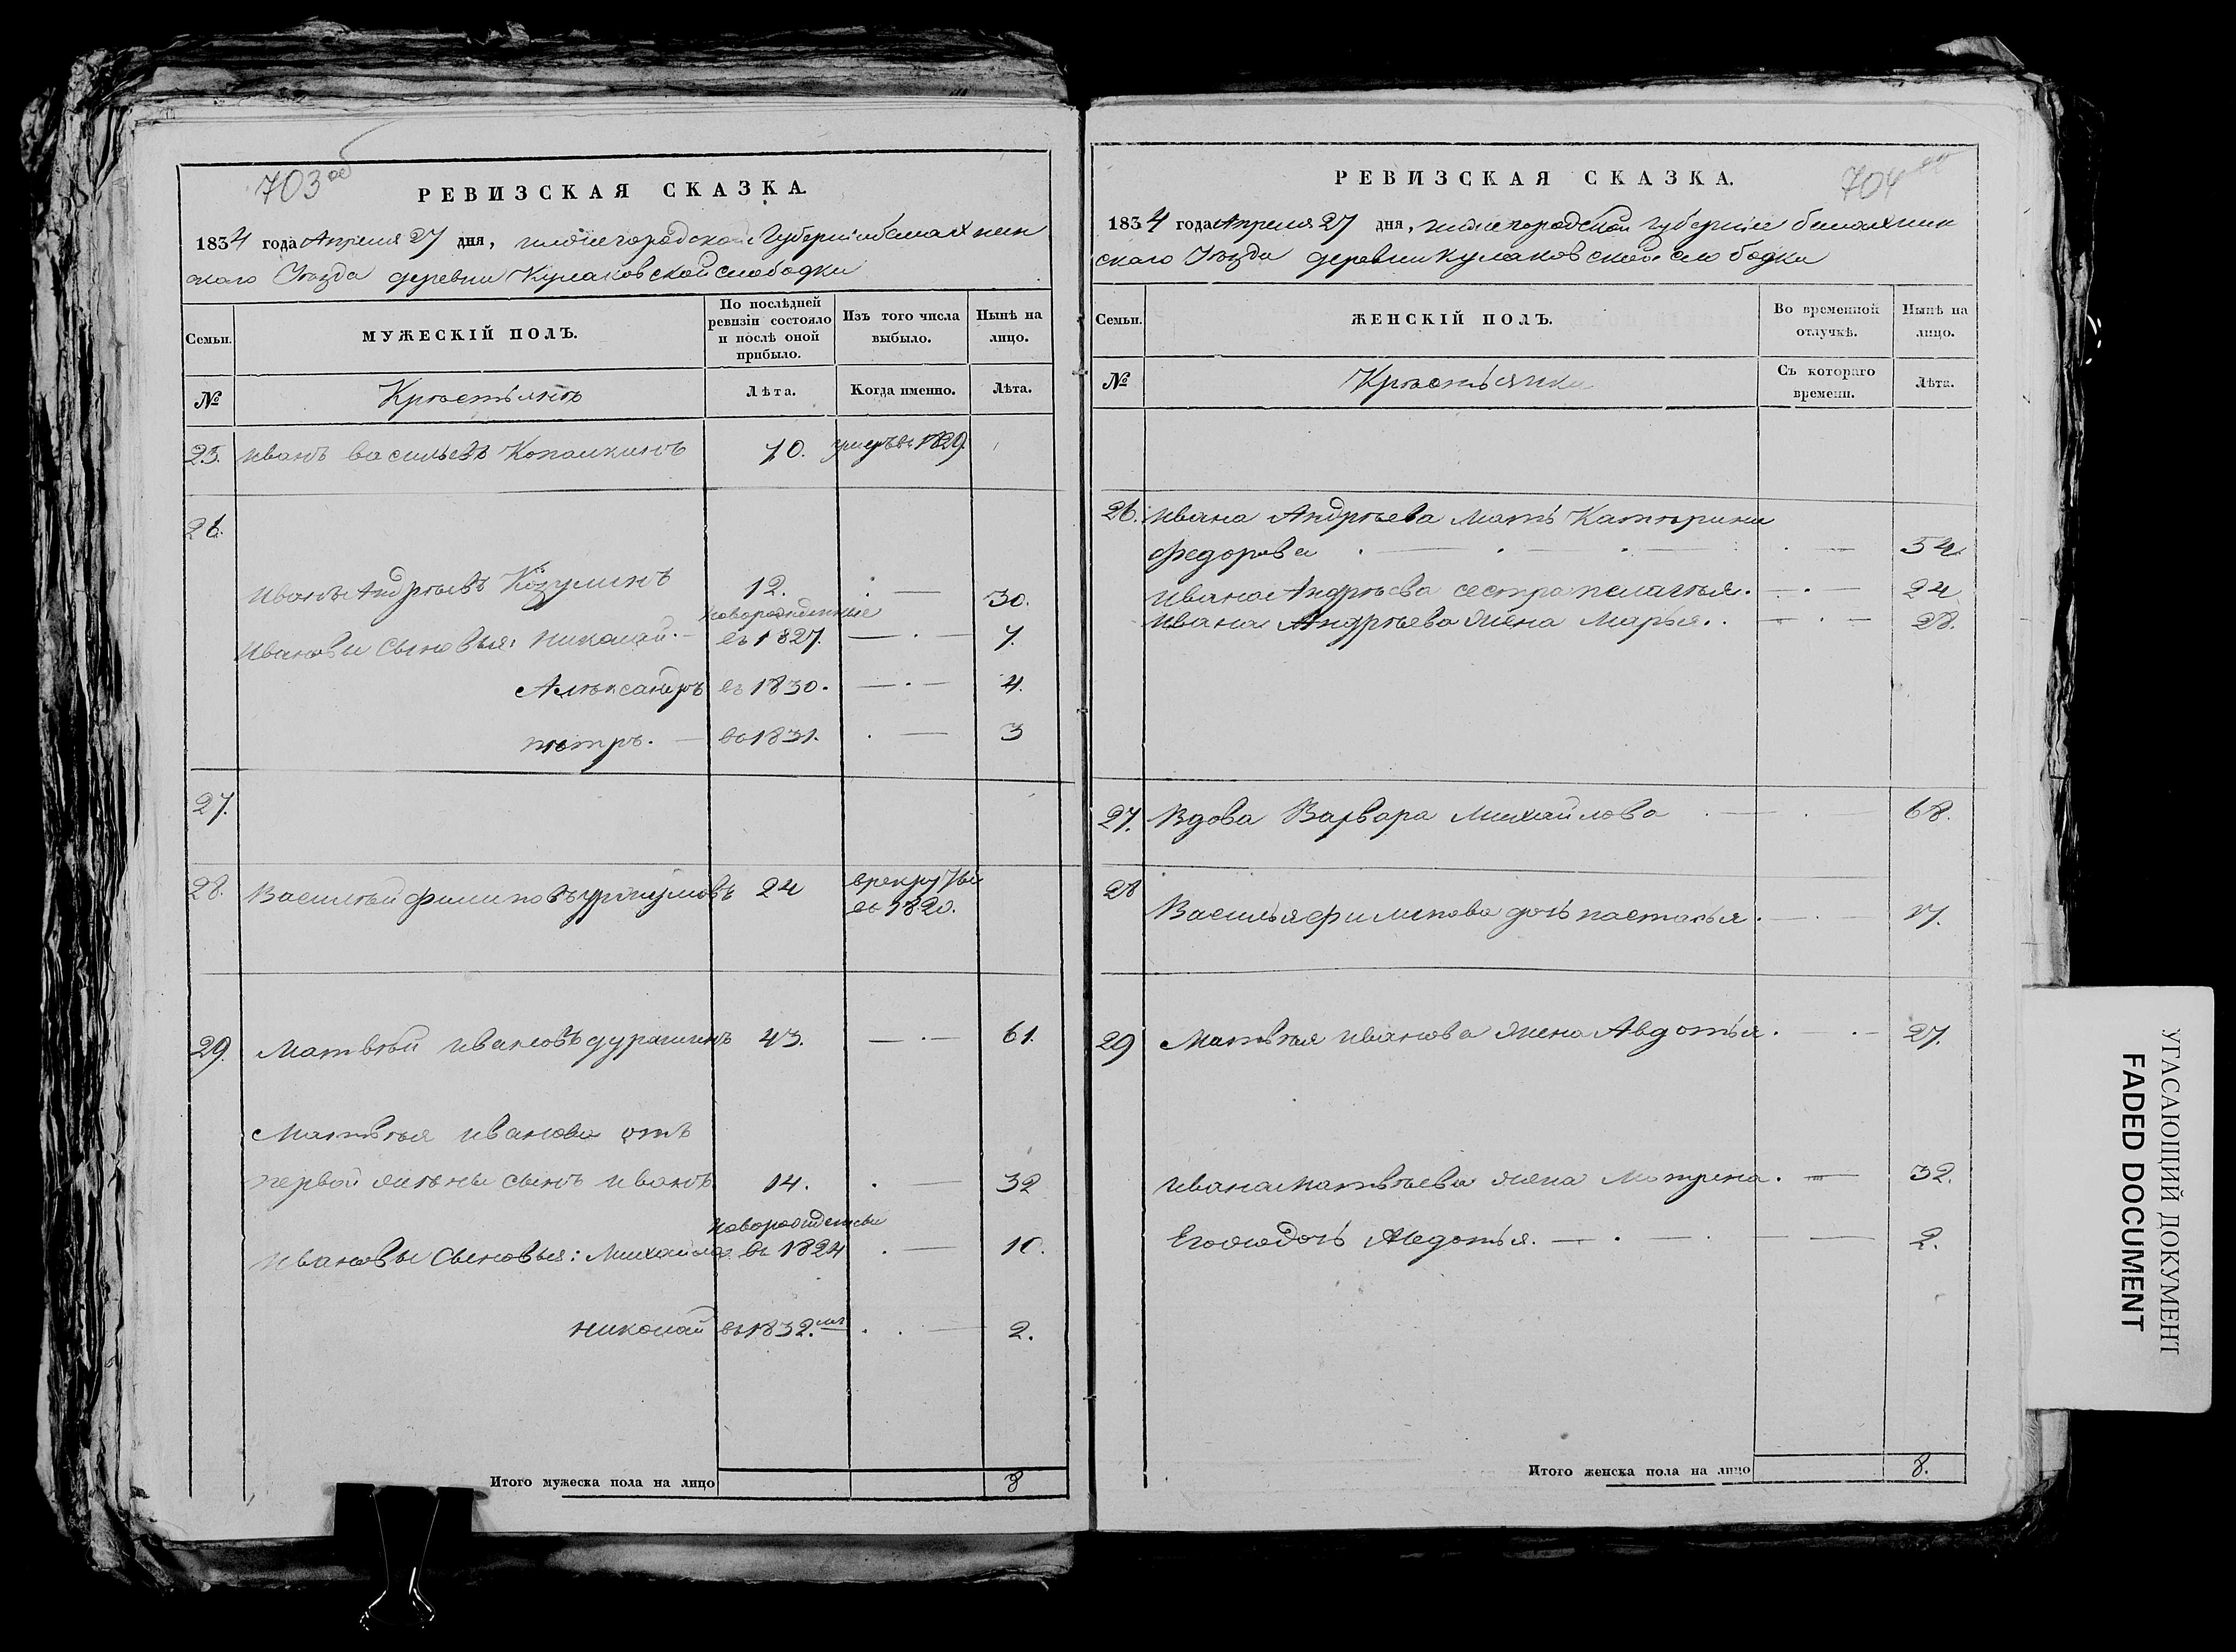 703 об
РЕВИЗСКАЯ СКАЗКА.
1834 года Апреля 27 дня, нижегородской Губернии балахнин
скаго Уѣзда деревни Кулаковской слободки
Семьи.
МУЖЕСКІЙ ПОЛЪ.
По послѣдней
ревизіи состояло
и послѣ оной
прибыло.
Изъ того числа
выбыло.
Нынѣ на
лицо.
№
Крѣстьянъ
Лѣта.
Когда именно.
Лѣта.
25. иванъ васильевъ 10. умеръ въ 1829.
26.
иванъ Андрѣевъ Козулинъ 12. — 30.
новорожденные
ивановы сыновья: николай. въ 1827. — 7.
Алѣксандръ въ 1830. — 4.
пѣтръ. — въ 1831. — 3
27.
28. Василѣй филиповъ 24 в рекруты
въ 1820.
29. Матвѣй ивановъ дурашинъ 43. — 61.
Матвѣя иванова отъ
первой жѣны сынъ иванъ 14. — 32
новорожденны
ивановы сыновья: Михайла въ 1824 — 10.
николай въ 1832. — 2.
Итого мужеска пола на лицо 8
704
РЕВИЗСКАЯ СКАЗКА.
1834 года Апреля 27 дня, нижегородской губернии балахнин
скаго Уѣзда деревни кулаковской слободки
Семьи.
ЖЕНСКІЙ ПОЛЪ.
Во временной
отлучкѣ.
Нынѣ на
лицо.
№
Крѣстьянки
Съ котораго
времени.
Лѣта.
26. ивана Андрѣева мать Катѣрина
федорова — 54.
ивана Андрѣева сестра пелагѣя. — 24
ивана Андрѣева жена Марья. — 28.
27. Вдова Варвара Михайлова — 68.
28
Василья филипова дочь настасья. — 17.
29 Матвѣя иванова жена Авдотья. — 27.
ивана матвѣева жена Матрена. — 32.
Его же дочь Авдотья. — 2.
Итого женска пола на лицо 8.
УГАСАЮЩИЙ ДОКУМЕНТ
FADED DOCUMENT